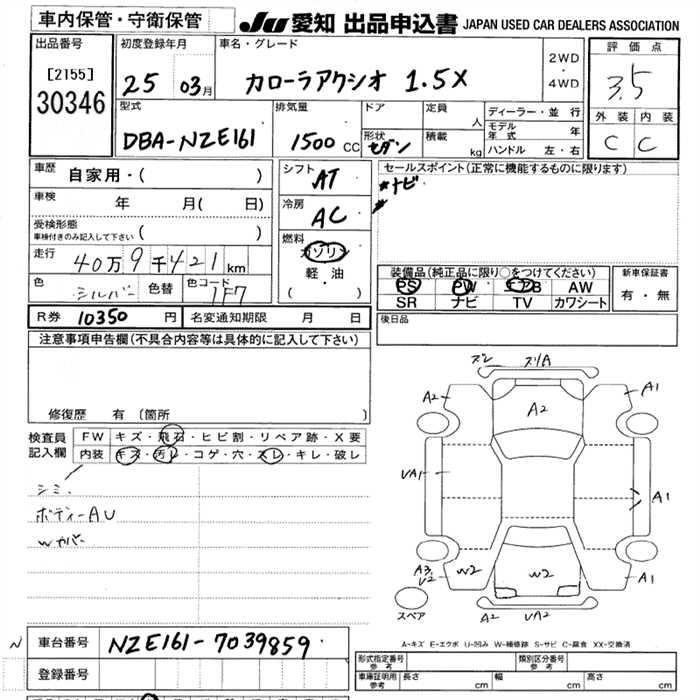 車内保管・守衛保管
JU 愛知 出品申込書 JAPAN USED CAR DEALERS ASSOCIATION
出品番号
[2155]
30346
初度登録年月
25 03月
車名・グレード
カローラアクシオ 1.5X
2WD
・
4WD
評価点
3.5
外装 内装
C C
型式
DBA-NZE161
排気量
1500 CC
ドア
形状
セダン
定員
人
積載
kg
ディーラー・並行
モデル年式 年
ハンドル 左・右
車歴
自家用・( )
車検
年 月( 日)
受検形態
車検付きのみ記入して下さい ( )
走行
40万9千421km
色
シルバー
色替
色コード
1F7
シフト
AT
冷房
AC
燃料
ガソリン
軽・油
( )
セールスポイント(正常に機能するものに限ります)
*ナビ
装備品(純正品に限り○をつけてください)
PS PW エアB AW
SR ナビ TV カワシート
新車保証書
有・無
後日品
R券 10350 円
名変通知期限 月 日
注意事項申告欄(不具合内容等は具体的に記入して下さい)
修復歴 有 〔箇所
検査員記入欄
FW キズ・飛石・ヒビ割・リペア跡・X要
内装 キズ・汚レ・コゲ・穴・スレ・キレ・破レ
シミ
ボディーAU
Wカバー
ズレ
ズリA
A2
A2
A1
UA1
A1
A3
U2
W2
W2
A1
A2
UA2
スペア
A-キズ E-エクボ U-凹み W-補修跡 S-サビ C-腐食 XX-交換済
N
車台番号
NZE161-7039859
登録番号
形式指定番号 参考
類別区分番号 参考
車庫証明用 参考
長さ cm
幅 cm
高さ cm